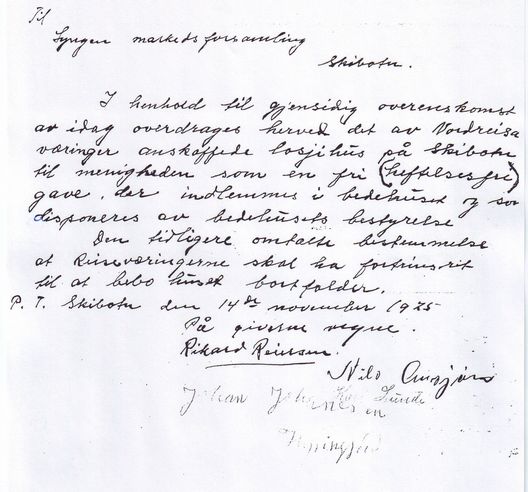 Til
Lyngen markedsforsamling
Skibotn.
I henhold til gjensidig overenskomst
av idag overdrages herved det av Nordreisa
væringer anskaffede losjihus på Skibotn
til menigheden som en fri (heftelsesfri)
gave, der indlemmes i bedehuset og som
disponeres av bedehusets bestyrelse
Den tidligere omtalte bestemmelse
at Reiseværingerne skal ha fortrinsrit
til at bebo huset bortfalder.
P. T. Skibotn den 14de november 1925
På givernes vegne.
Rikard Reiersen.
Nils
Johan Johannesen
Lunde